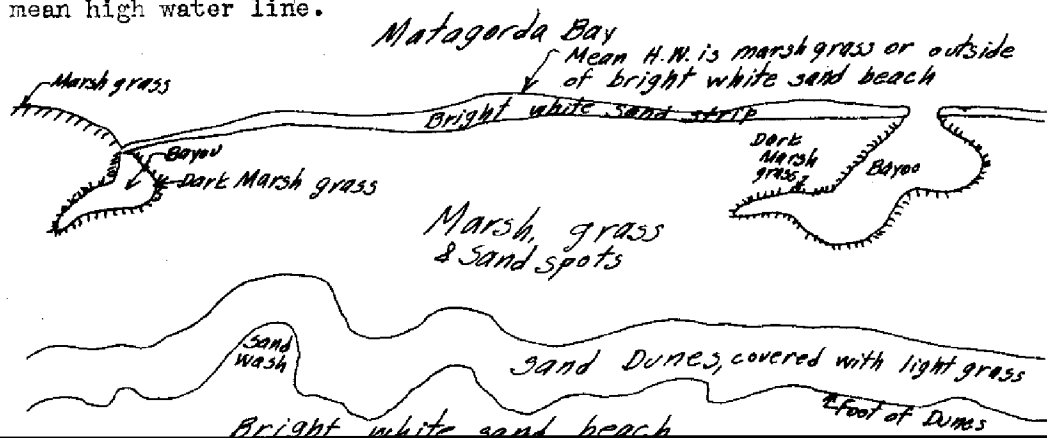 mean high water line.
Matagorda Bay
Mean H.W. is marsh grass or outside
of bright white sand beach
Marsh grass
Bright white sand strip
Bayou
Dark Marsh grass
Dark
Marsh
grass
Bayoo
Marsh, grass
& Sand spots
Sand
wash
Sand Dunes, covered with light grass
Foot of Dunes
Bright white sand beach